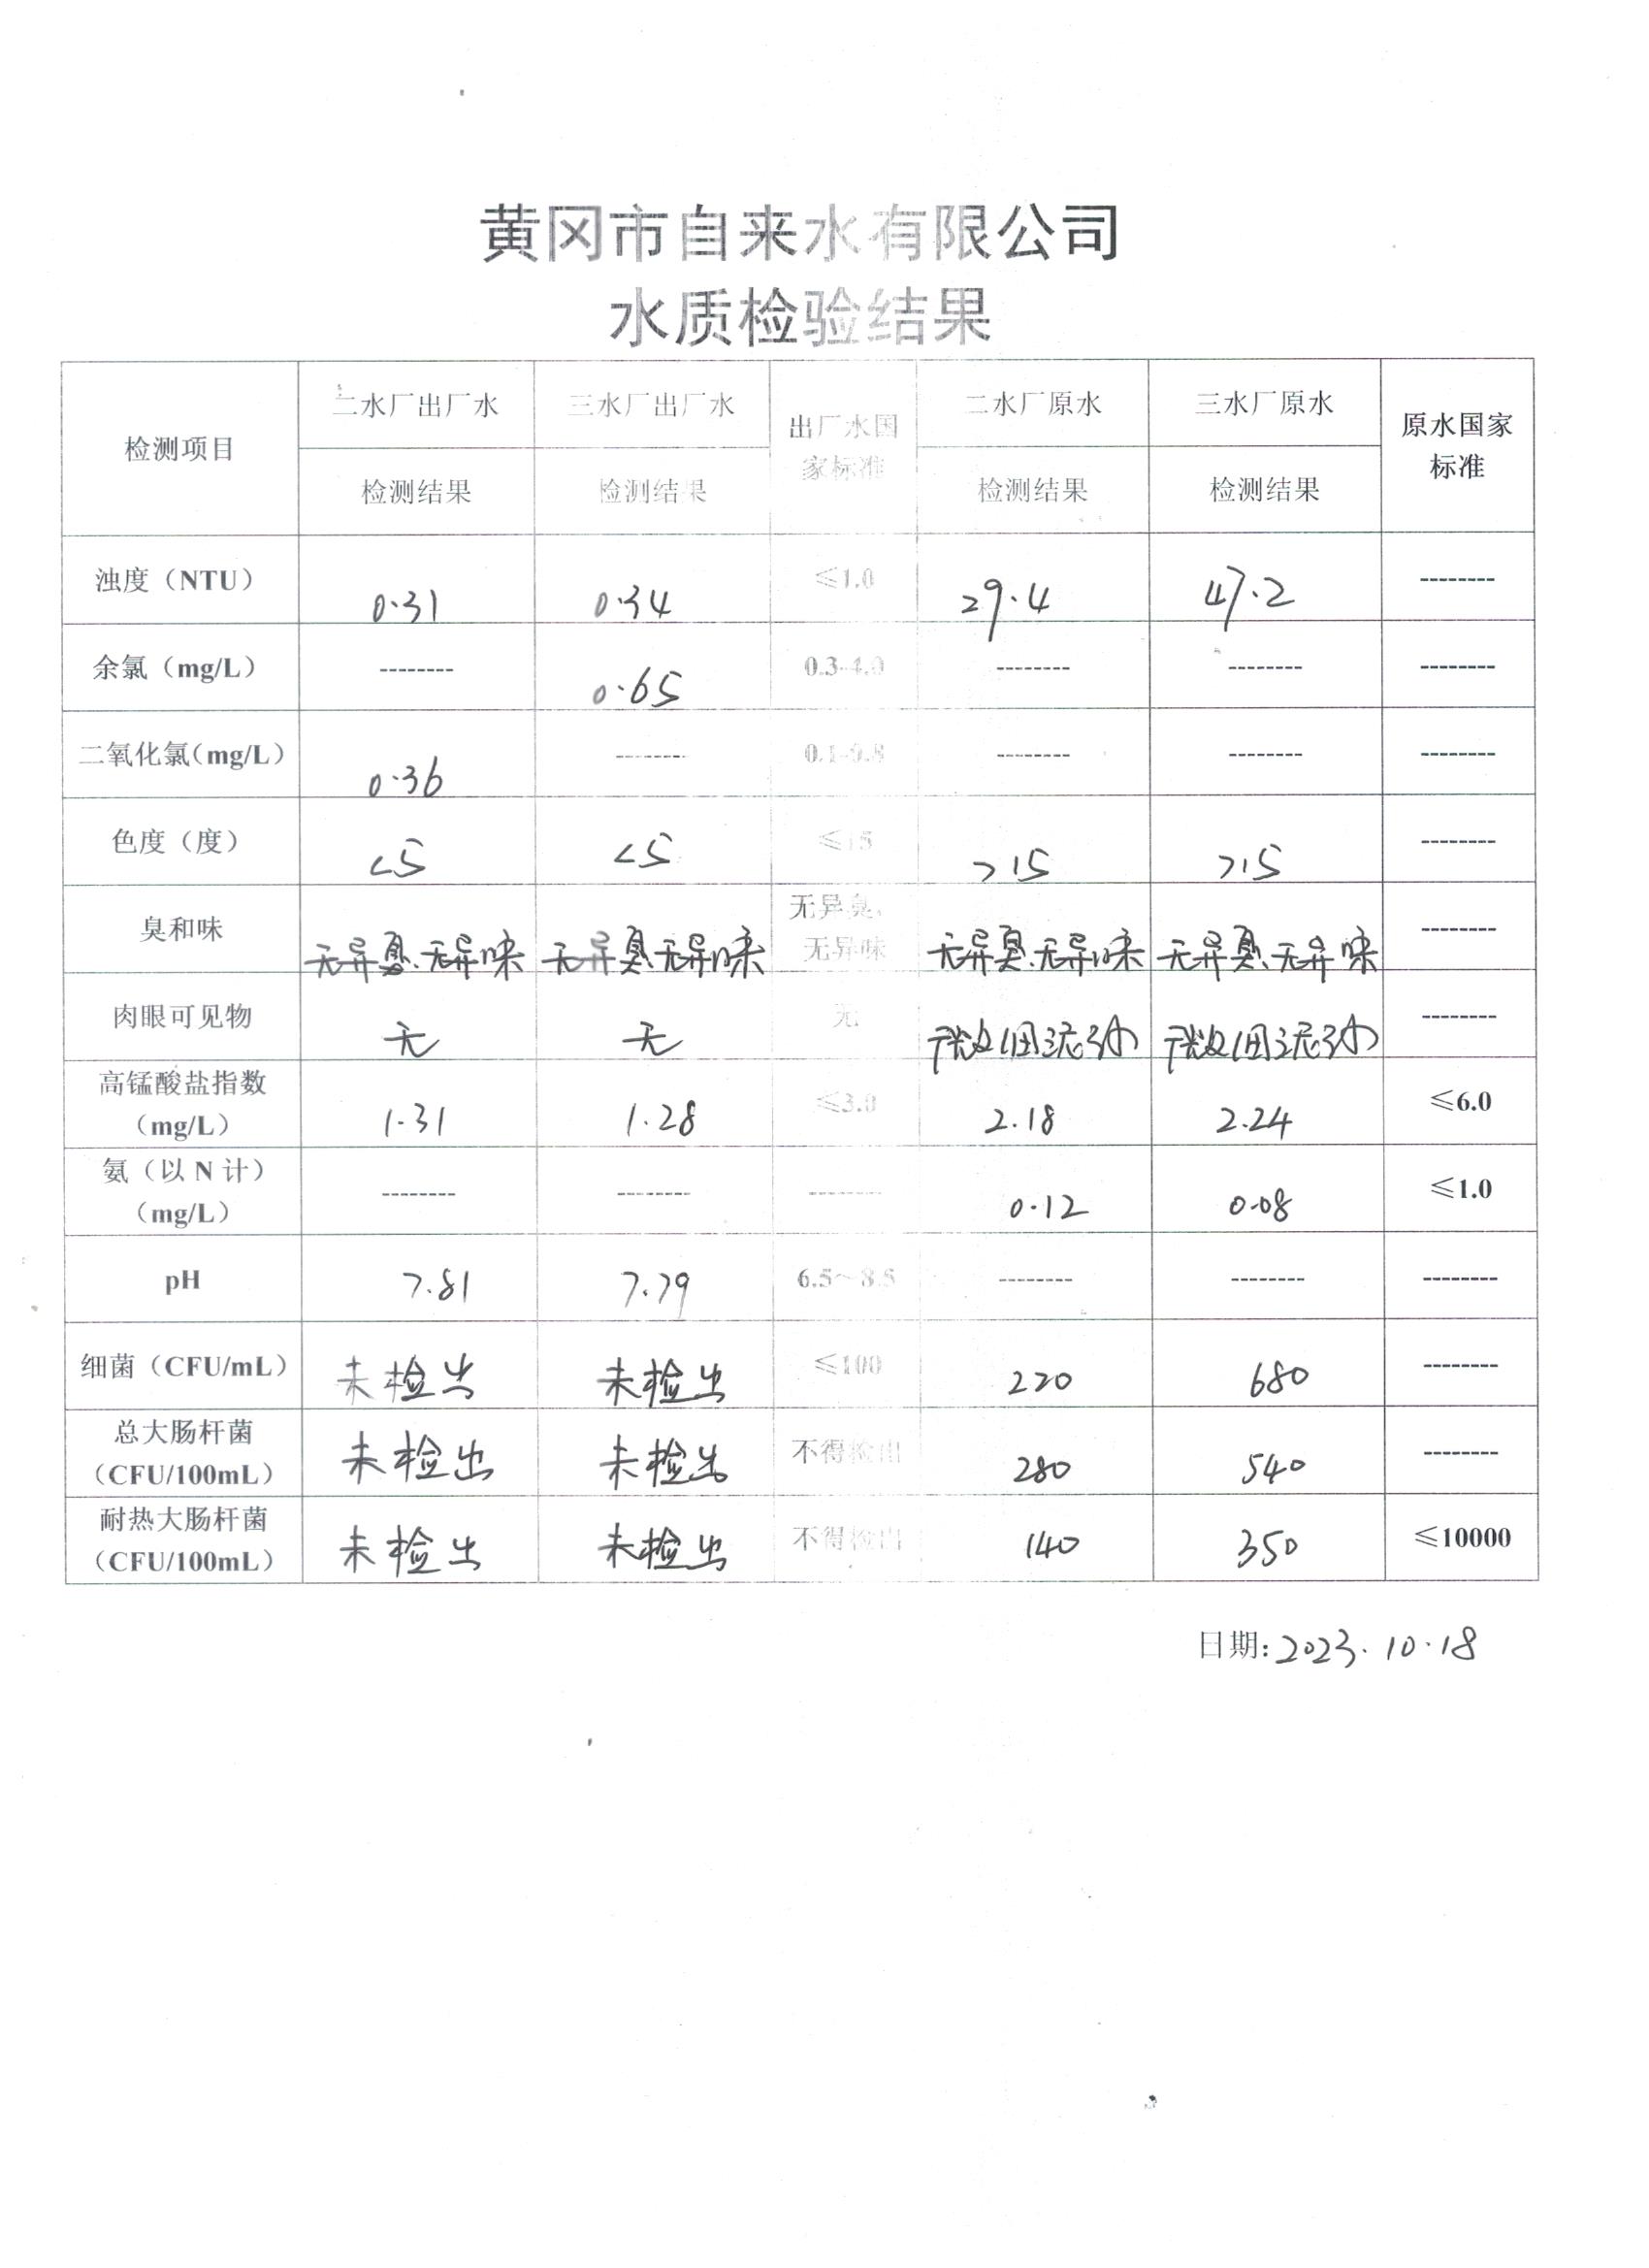 黄冈市自来水有限公司
水质检验结果
检测项目 二水厂出厂水 三水厂出厂水 出厂水国家标准 二水厂原水 三水厂原水 原水国家标准
检测结果 检测结果 检测结果 检测结果
浊度（NTU） 0.31 0.34 ≤1.0 29.4 47.2 --------
余氯（mg/L） -------- 0.65 0.3-4.0 -------- -------- --------
二氧化氯（mg/L） 0.36 -------- 0.1-0.8 -------- -------- --------
色度（度） <5 <5 ≤15 >15 >15 --------
臭和味 无异臭、无异味 无异臭、无异味 无异臭、无异味 无异臭、无异味 无异臭、无异味 --------
肉眼可见物 无 无 无 微细泥沙 微细泥沙 --------
高锰酸盐指数（mg/L） 1.31 1.28 ≤3.0 2.18 2.24 ≤6.0
氨（以 N 计）（mg/L） -------- -------- -------- 0.12 0.08 ≤1.0
pH 7.81 7.79 6.5～8.5 -------- -------- --------
细菌（CFU/mL） 未检出 未检出 ≤100 220 680 --------
总大肠杆菌（CFU/100mL） 未检出 未检出 不得检出 280 540 --------
耐热大肠杆菌（CFU/100mL） 未检出 未检出 不得检出 140 350 ≤10000
日期: 2023.10.18